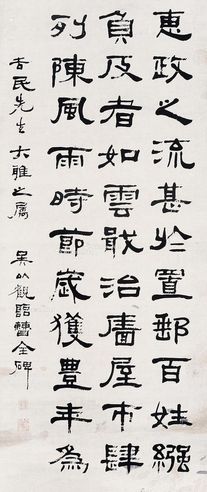 惠政之流甚於置郵百姓繦
負反者如雲戢治廧屋市肆
列陳風雨時節歲獲豊年為
民先生大雅之屬 吳觀臨曹全碑